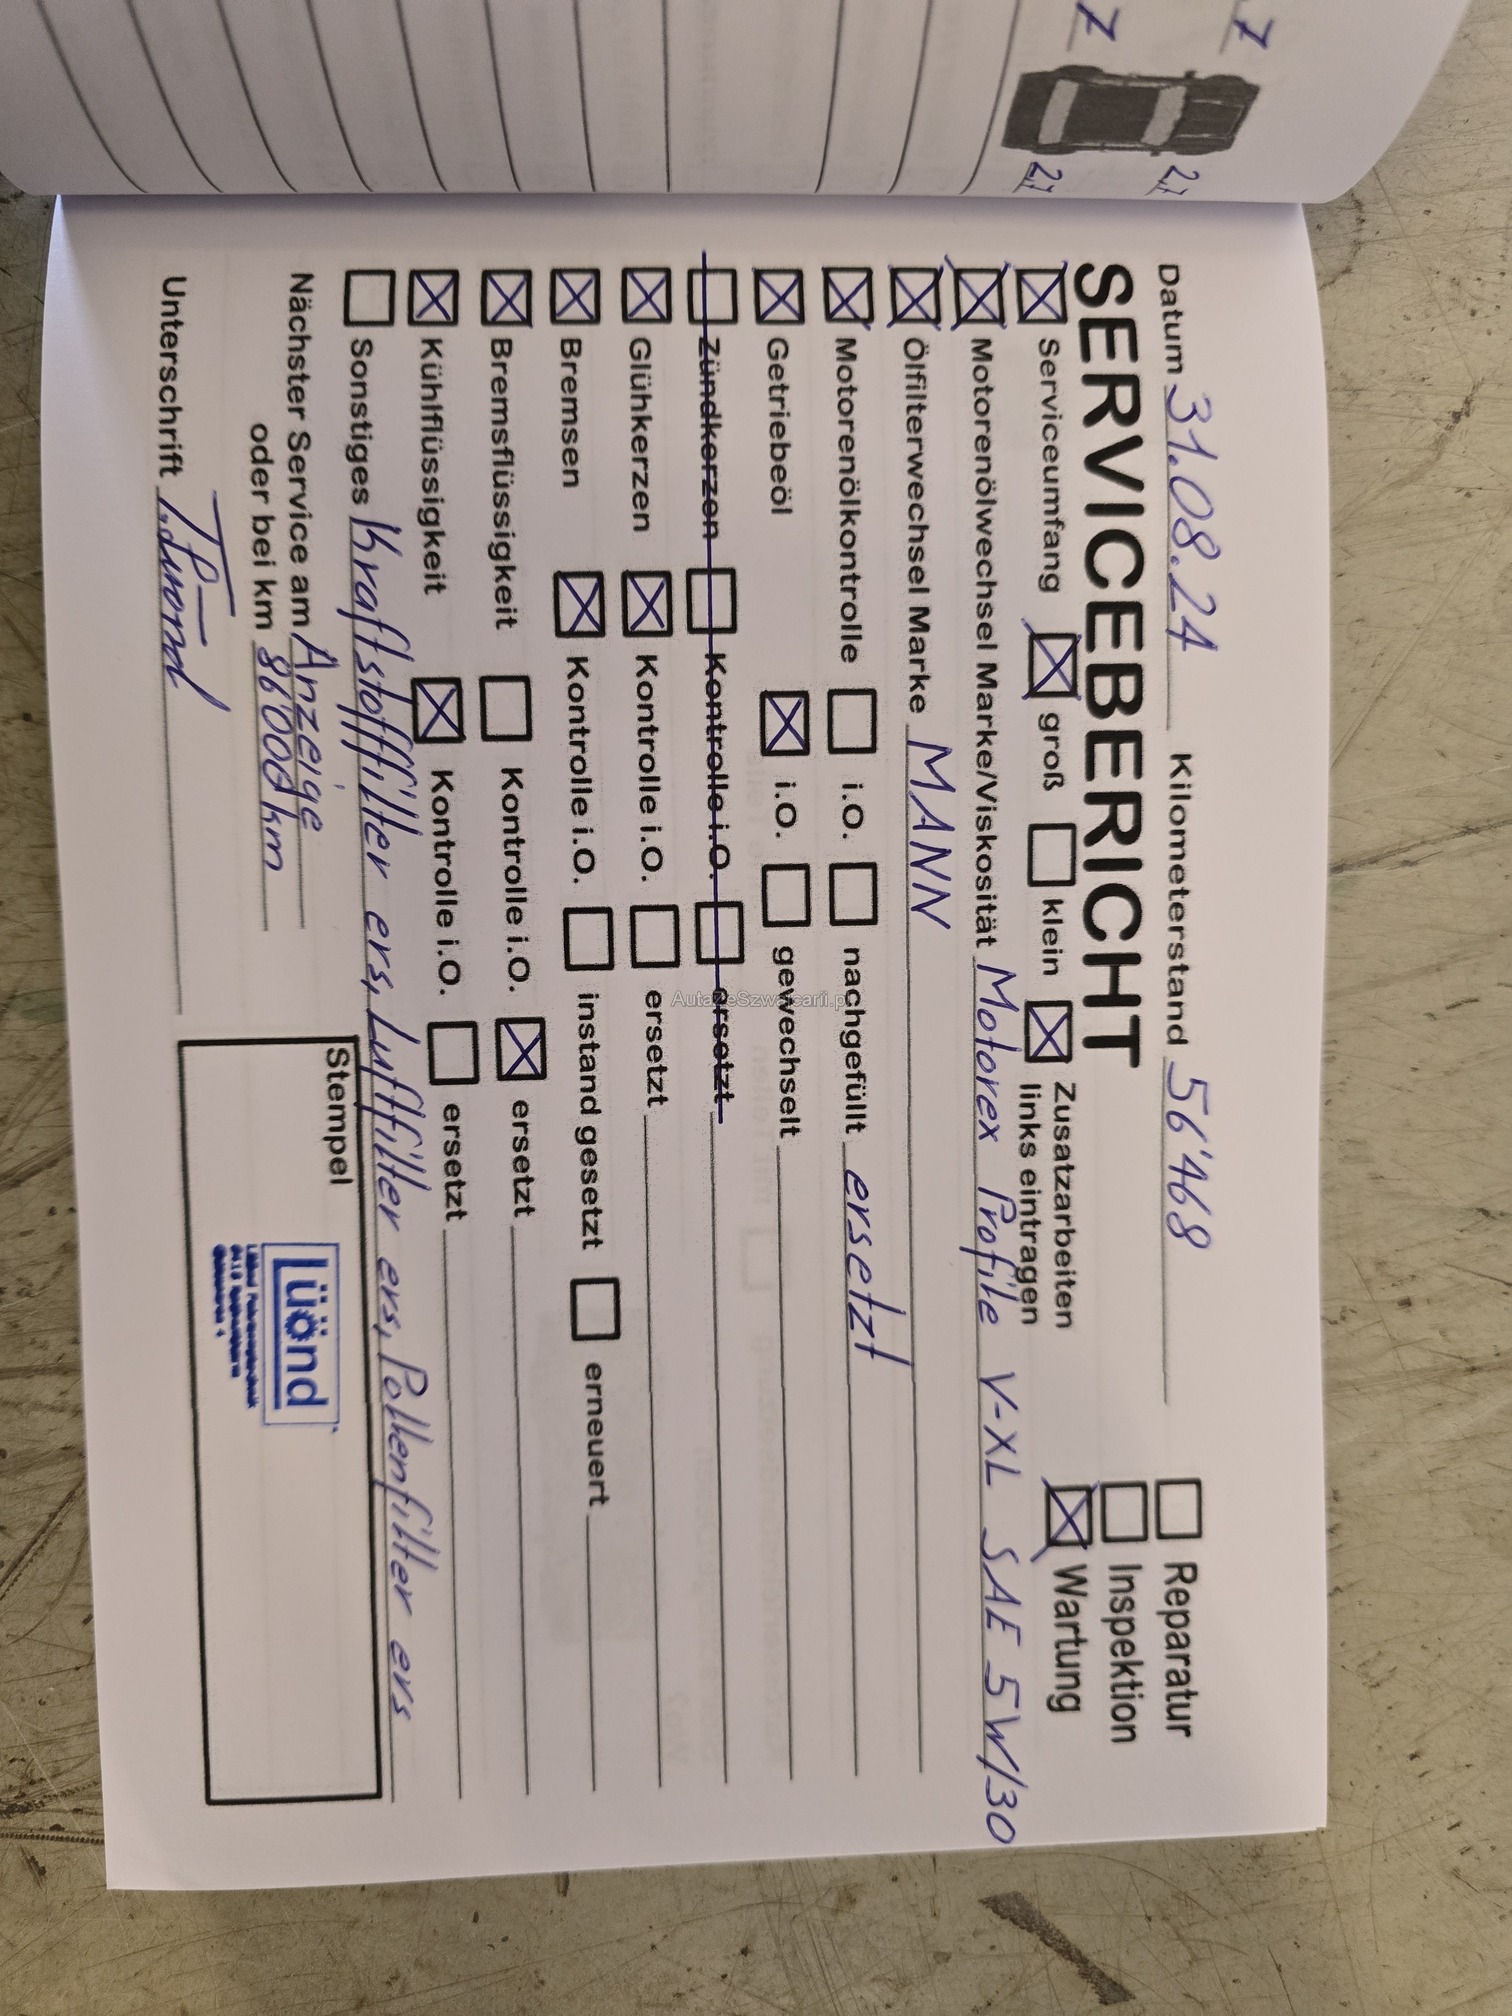 7
7
2,7
2,7
Datum 31.08.24 Kilometerstand 56'468
Reparatur
SERVICEBERICHT
Inspektion
Serviceumfang groß klein Zusatzarbeiten links eintragen
Wartung
Motorenölwechsel Marke/Viskosität Motorex Profile V-XL SAE 5W/30
Ölfilterwechsel Marke MANN
Motorenölkontrolle i.O. nachgefüllt ersetzt
Getriebeöl i.O. gewechselt
Zündkerzen Kontrolle i.O. ersetzt
Glühkerzen Kontrolle i.O. ersetzt
Bremsen Kontrolle i.O. instand gesetzt erneuert
Bremsflüssigkeit Kontrolle i.O. ersetzt
Kühlflüssigkeit Kontrolle i.O. ersetzt
Sonstiges Kraftstofffilter ers, Luftfilter ers, Pollenfilter ers
Nächster Service am Anzeige
oder bei km 86'000km
Unterschrift
Stempel
Lüönd
AutazeSzwajcarii.pl